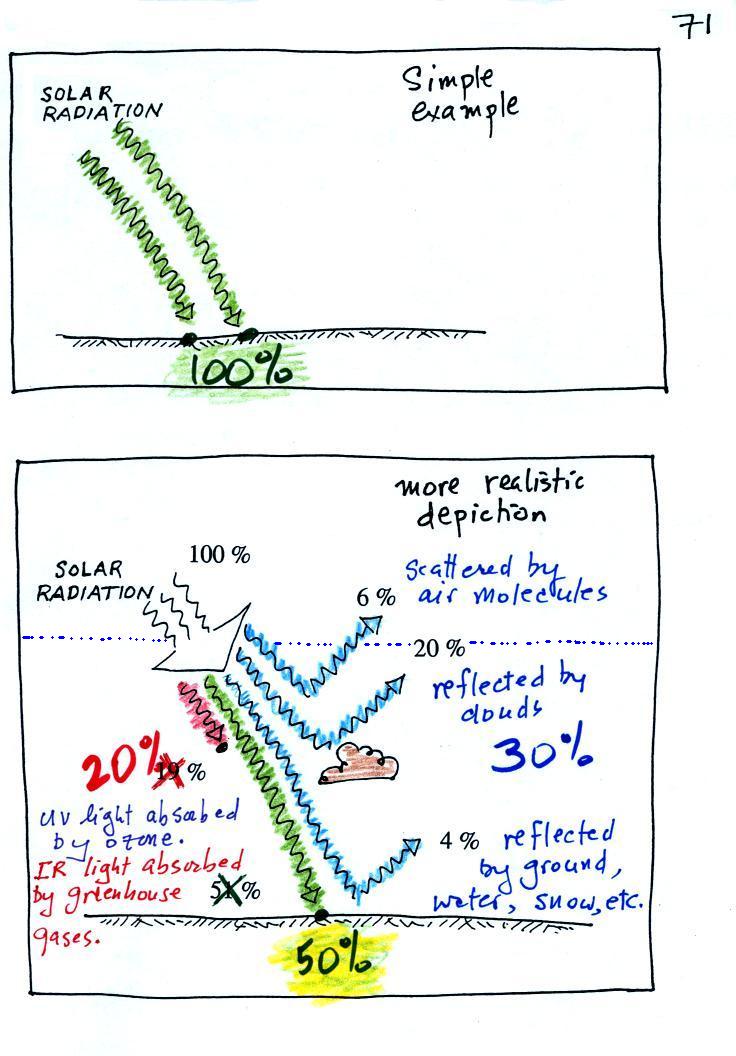 71
Simple
example
SOLAR
RADIATION
100%
more realistic
depiction
100 %
SOLAR
RADIATION
scattered by
air molecules
6 %
20 %
reflected by
clouds
30%
20%
19 %
UV light absorbed
by ozone.
IR light absorbed
by greenhouse
gases.
51 %
4 %
reflected
by ground,
water, snow, etc.
50%